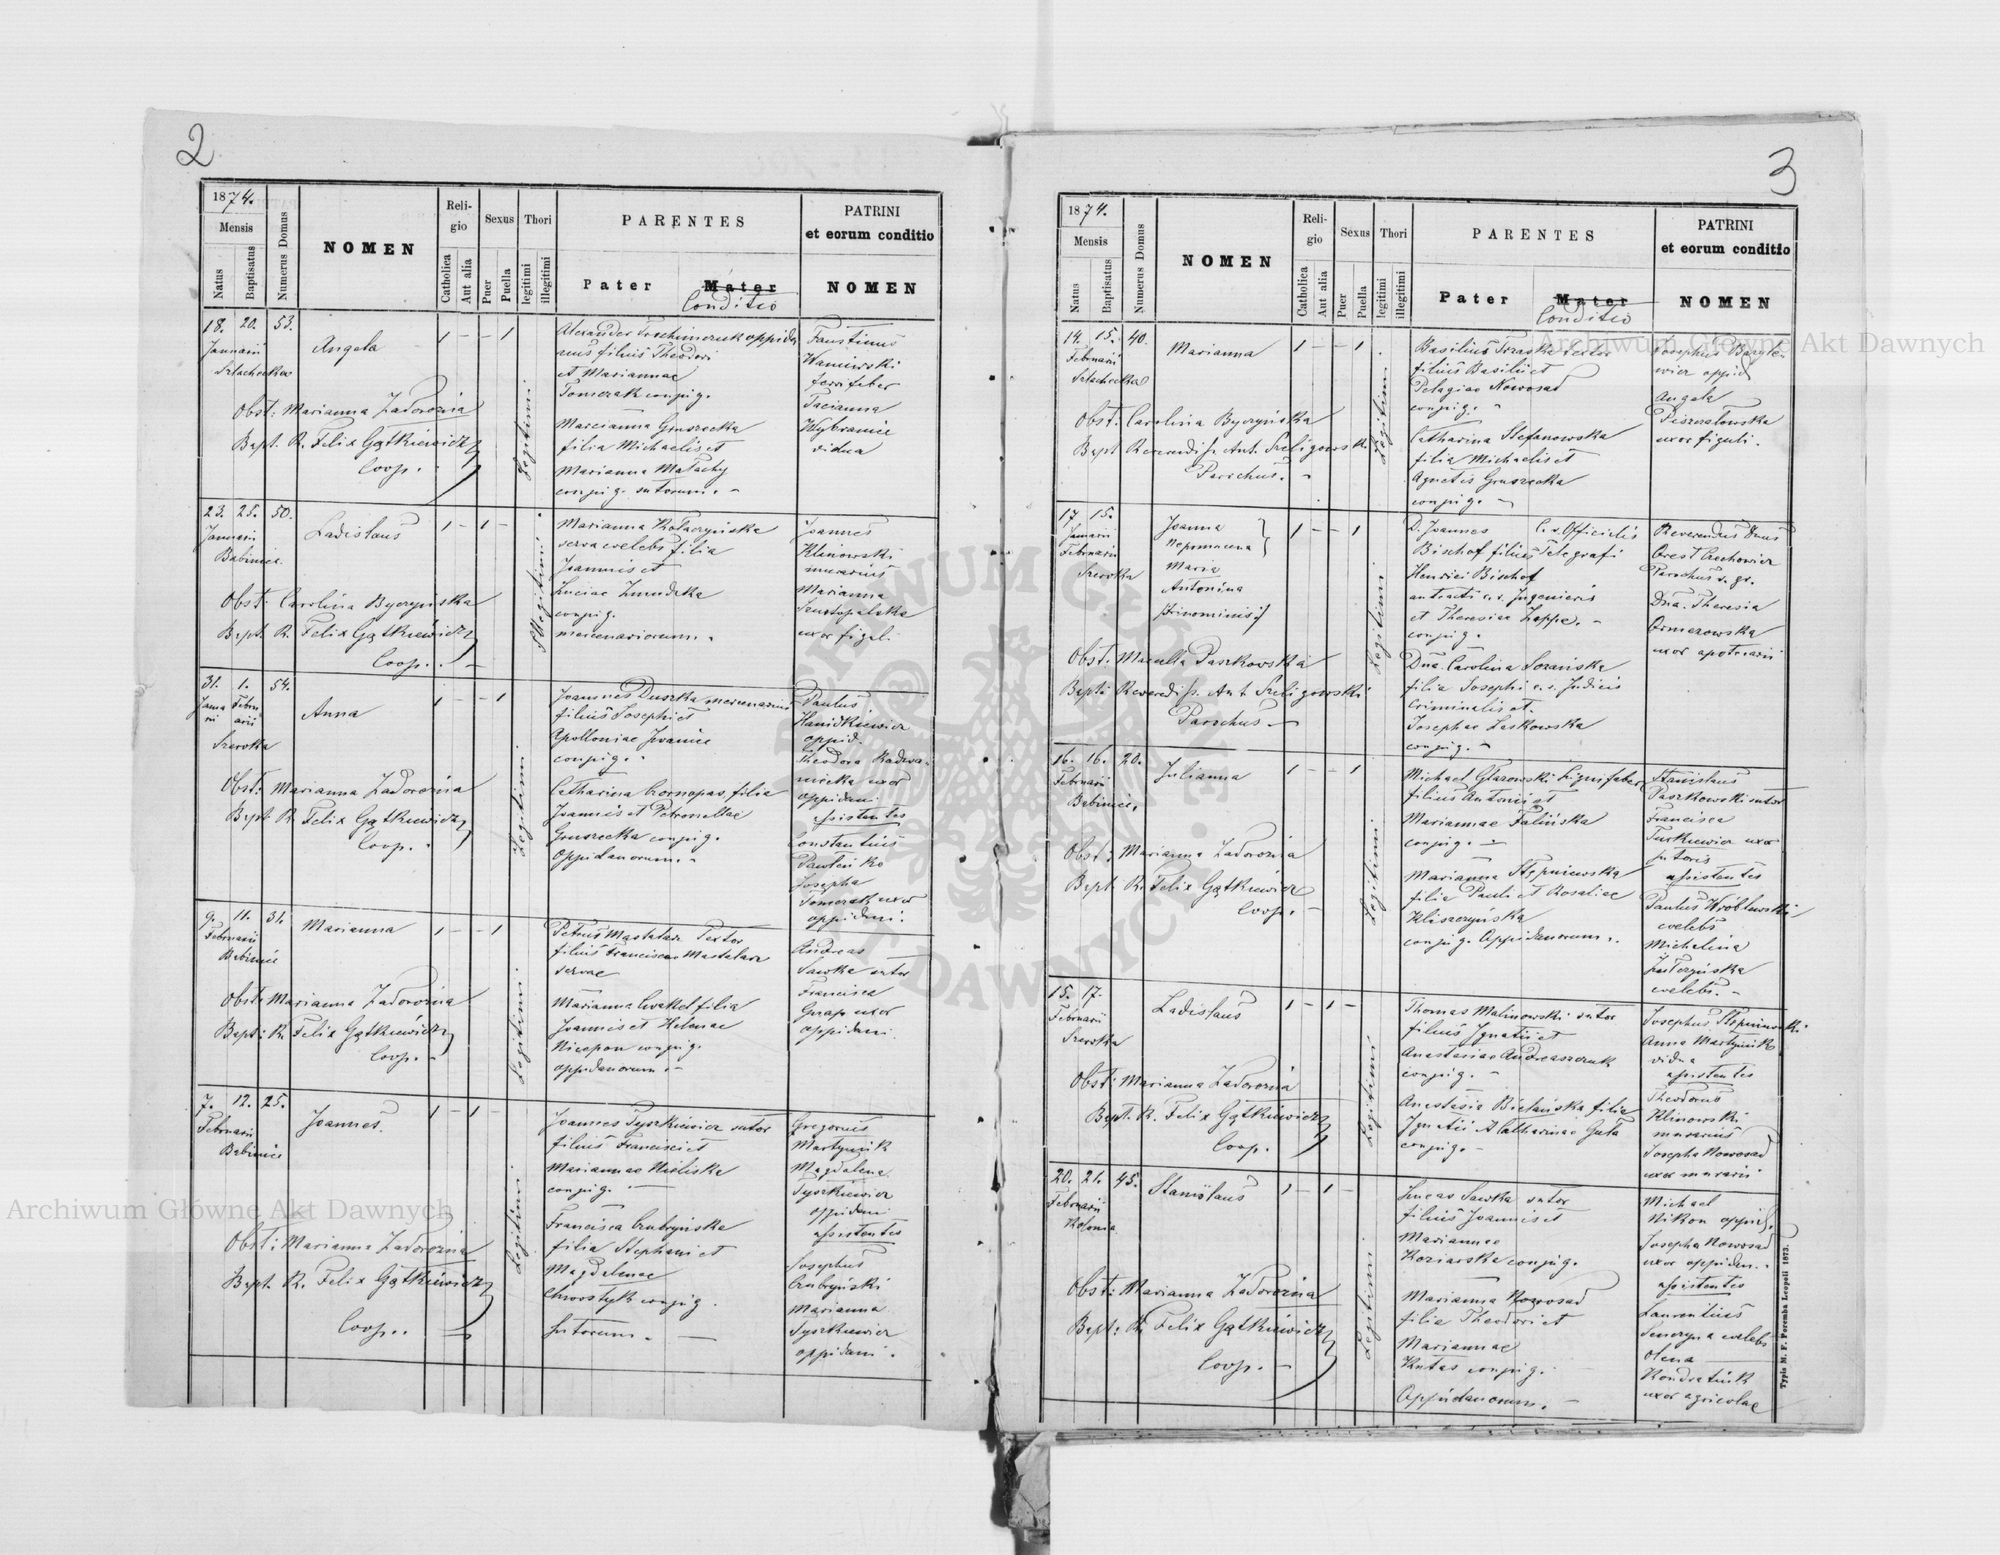 2
1874.
Mensis
Natus
Baptisatus
Numerus Domus
NOMEN
Religio
Catholica
Aut alia
Sexus
Puer
Puella
Thori
legitimi
illegitimi
PARENTES
Pater
Mater
Conditio
PATRINI
et eorum conditio
NOMEN
18. 20. 53.
Januarii
Szlachecka
Angela
1 - - 1
Obst: Marianna Zadorożna
Bapt. R. Felix Gątkiewicz
Coop.
Legitimi
Alexander
filius Theodori
et Mariannae
Tomczak conjug.
Marcianna Gruszecka
filia Michaelis et
Marianna
conjug. sutorum.
Faustinus
Waniewski
ferrifaber
Tacianna
vidua
23. 25. 50.
Januarii
Babinie.
Ladislaus
1 - 1 -
Obst: Carolina Byczyńska
Bapt. R. Felix Gątkiewicz
Coop.
Illegitimi
Marianna Kołaczyńska
serva caelebs filia
Joannis et
Luciae
conjug.
mercenariorum.
Joannes
Klinowski
murarius
Marianna
Szustopalska
uxor figul.
31. 1. 54.
Januarii
Februarii
Szewska
Anna
1 - - 1
Obst: Marianna Zadorożna
Bapt R Felix Gątkiewicz
Coop.
Legitimi
Joannes Duszka mercenarius
filius Josephi et
Apolloniae
conjug.
Catharina Czornopas, filia
Joannis et Petronellae
Gruszecka conjug.
Oppidanorum.
Paulus
oppid.
Theodora
uxor
oppidani
assistentes
Constantius
Josepha
Tomczak uxor
oppidani.
9. 11. 31.
Februarii
Babinie
Marianna
1 - - 1
Obst: Marianna Zadorożna
Bapt: R. Felix Gątkiewicz
Coop.
Legitimi
Petrus Mastalarz Textor
filius Franciscae Mastalarz
servae
Marianna Cwakel filia
Joannis et Helenae
conjug.
oppidanorum.
Andreas
Sawka sutor
Francisca
uxor
oppidani.
7. 12. 25.
Februarii
Babinie
Joannes.
1 - 1 -
Obst: Marianna Zadorożna
Bapt. R. Felix Gątkiewicz
Coop.
Legitimi
Joannes Tyszkiewicz sutor
filius Francisci et
Mariannae
conjug.
Francisca Czubryńska
filia Stephani et
Magdalenae
Chrostyk conjug.
Sutorum.
Gregorius
Martyniuk
Magdalena
Tyszkiewicz
oppidani
assistentes
Josephus
Czubryński
Marianna
Tyszkiewicz
oppidani.
3
1874.
Mensis
Natus
Baptisatus
Numerus Domus
NOMEN
Religio
Catholica
Aut alia
Sexus
Puer
Puella
Thori
legitimi
illegitimi
PARENTES
Pater
Mater
Conditio
PATRINI
et eorum conditio
NOMEN
14. 15. 40.
Februarii
Szlachecka
Marianna
1 - - 1
Obst: Carolina Byczyńska
Bapt Reverendiss. Ant. Szeligowski
Parochus.
Legitimi
Basilius Traska textor
filius Basilii et
Pelagiae Nowosad
conjug.
Catharina Stefanowska
filia Michaelis et
Agnetis Gruszecka
conjug.
Josephus
oppid
Angela
uxor figuli.
17 15.
Januarii
Februarii
Szewska
Joanna
Maria
Antonina
/trinominis/
1 - - 1
Obst: Marcella Paszkowska
Bapt: Reverediss. Ant. Szeligowski
Parochus
Legitimi
D. Joannes C. r. Officialis
Bischof filius Telegrafi
Henrici Bischof
c. r. Ingenieris
et Theresiae Zappe.
conjug.
Dna. Carolina Sozańska
filia Josephi c. r. Judicis
Criminalis et.
Josephae Laskowska
conjug.
Reverendus Dnus
Orest Czechowicz
Parochus r. gr.
Dna. Theresia
Ormezowska
uxor apotecarii
16. 16. 20.
Februarii
Babinie.
Julianna
1 - - 1
Obst: Marianna Zadorożna
Bapt. R. Felix Gątkiewicz
Coop.
Legitimi
Michael Głazowski Lignifaber
filius Antonii et
Mariannae Falińska
conjug.
Marianna Stępniewska
filia Pauli et Rosaliae
Kliszczyńska
conjug. Oppidanorum.
Stanislaus
Paszkowski sutor
Francisca
Turkiewicz uxor
sutoris
assistentes
Paulus Wróblewski
caelebs
Michalina
caelebs.
15. 17.
Februarii
Szewska
Ladislaus
1 - 1 -
Obst: Marianna Zadorożna
Bapt. R. Felix Gątkiewicz
Coop.
Legitimi
Thomas Malinowski sutor
filius Ignatii et
Anastasiae Andreaszczuk
conjug.
Anastasia Bielańska filia
Ignatii & Catharinae Guta
conjug.
Josephus Stępniewski
Anna Martyniuk
vidua
assistentes
Theodorus
Klinowski
murarius
Josepha Nowosad
uxor murarii
20. 21. 45.
Februarii
Kolonia
Stanislaus
1 - 1 -
Obst: Marianna Zadorożna
Bapt: R. Felix Gątkiewicz
Coop.
Legitimi
Lucas Sawka sutor
filius Joannis et
Mariannae
Koziarska conjug.
Marianna Nowosad
filia Theodori et
Mariannae
Kutas conjug.
Oppidanorum.
Michael
Nikon oppid.
Josepha Nowosad
uxor oppidan.
assistentes
Laurentius
caelebs
Olena
Kondratiuk
uxor agricolae
Typis M. F. Poremba Leopoli 1873.
Archiwum Główne Akt Dawnych
Archiwum Główne Akt Dawnych
ARCHIWUM GŁÓWNE AKT DAWNYCH